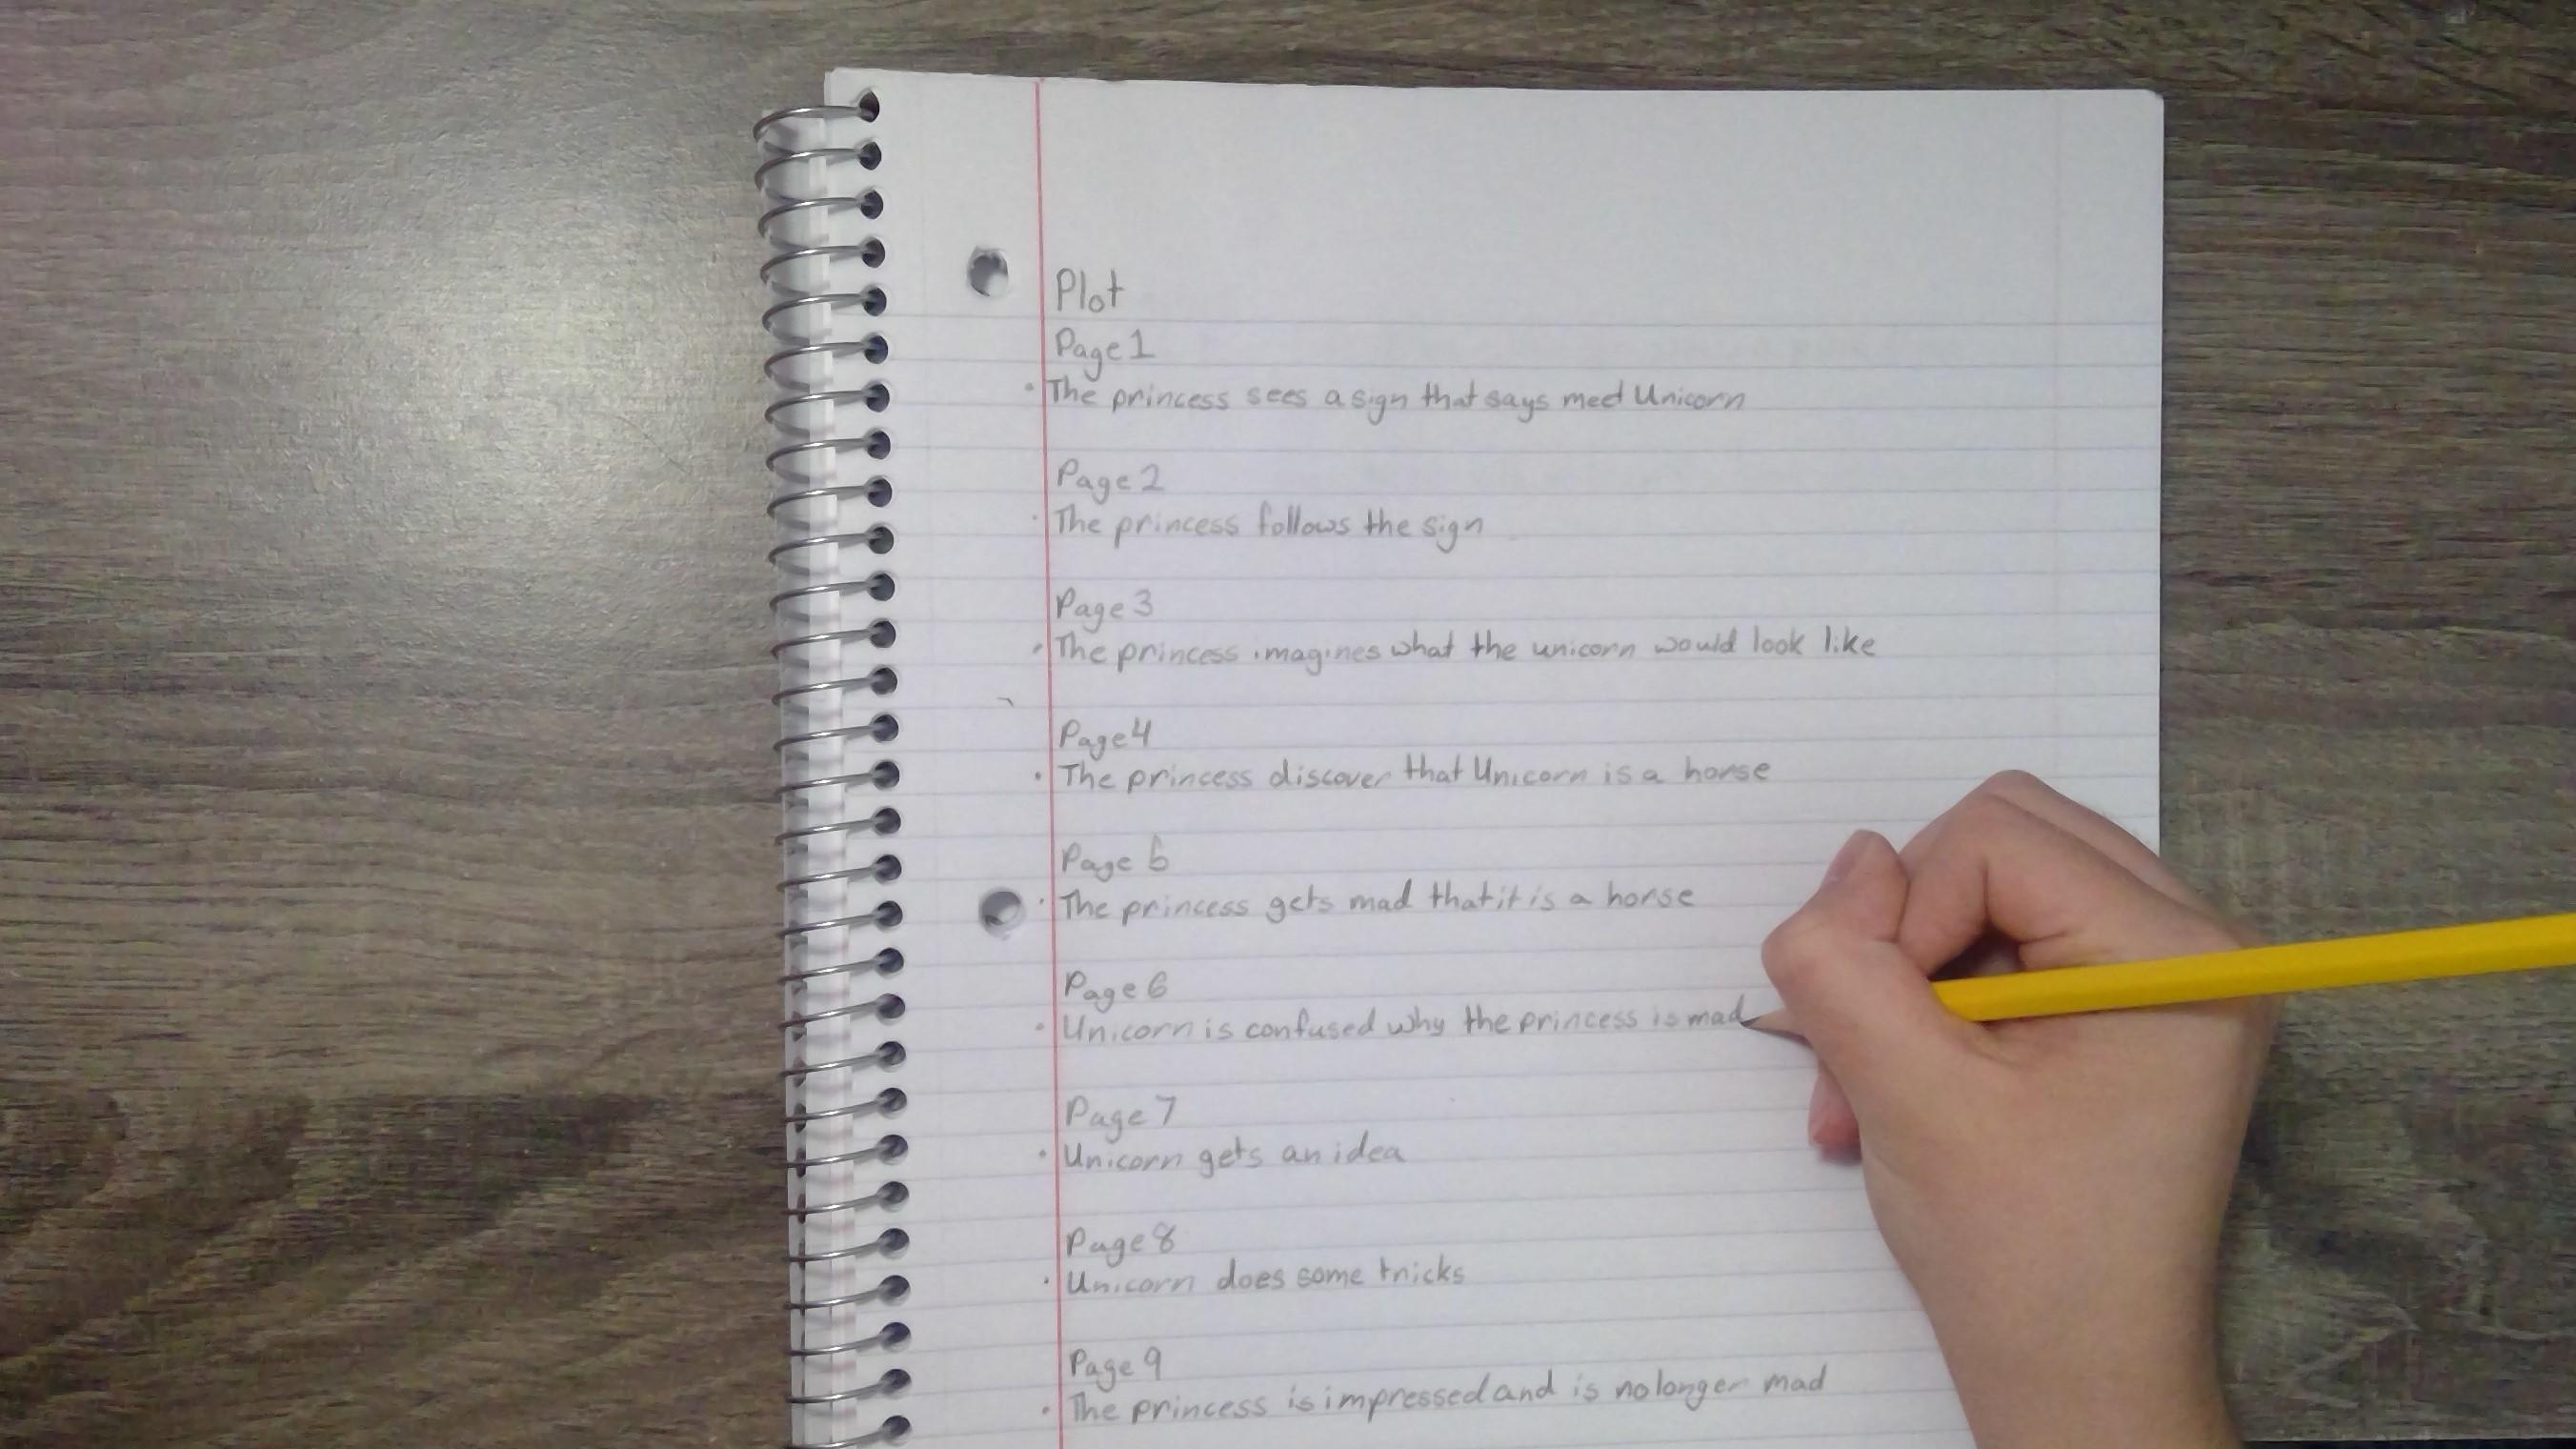 Plot
Page 1
• The princess sees a sign that says meet Unicorn
Page 2
• The princess follows the sign
Page 3
• The princess imagines what the unicorn would look like
Page 4
• The princess discover that Unicorn is a horse
Page 6
• The princess gets mad that it is a horse
Page 6
• Unicorn is confused why the princess is mad
Page 7
• Unicorn gets an idea
Page 8
• Unicorn does some tricks
Page 9
• The princess is impressed and is no longer mad